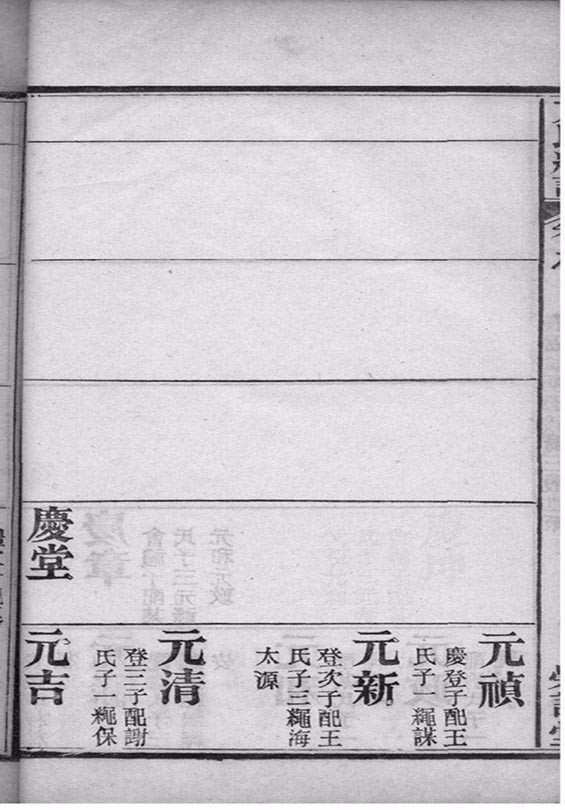 慶堂
元禎
慶登子配王
氏子一繩謀
元新
登次子配王
氏子三繩海
太源
元清
登三子配謝
氏子一繩保
元吉